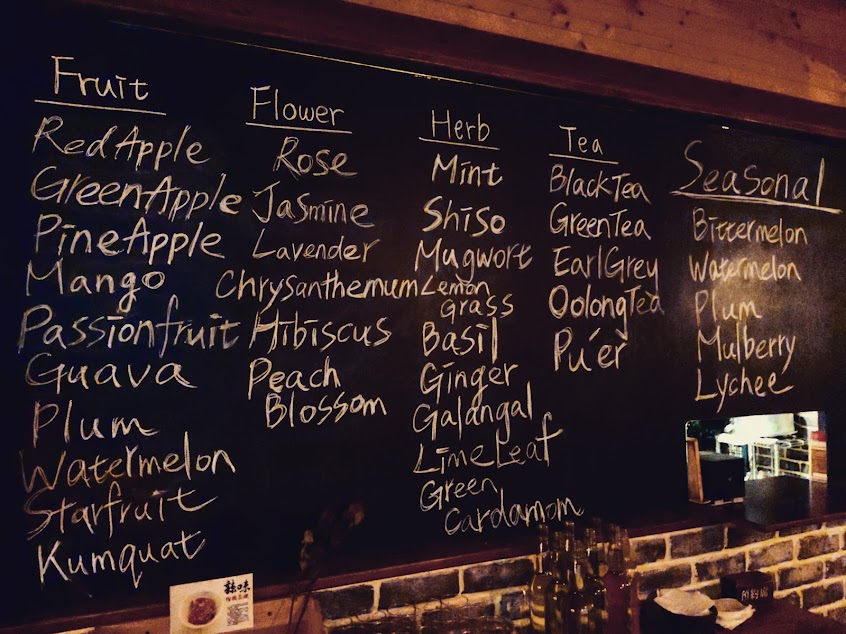 Fruit
RedApple
GreenApple
PineApple
Mango
Passionfruit
Guava
Plum
Watermelon
Starfruit
Kumquat
Flower
Rose
Jasmine
Lavender
Chrysanthemum
Hibiscus
Peach
Blossom
Herb
Mint
Shiso
Mugwort
Lemon
grass
Basil
Ginger
Galangal
LimeLeaf
Green
Cardamom
Tea
BlackTea
GreenTea
EarlGrey
OolongTea
Pu'er
Seasonal
Bittermelon
Watermelon
Plum
Mulberry
Lychee
辣味